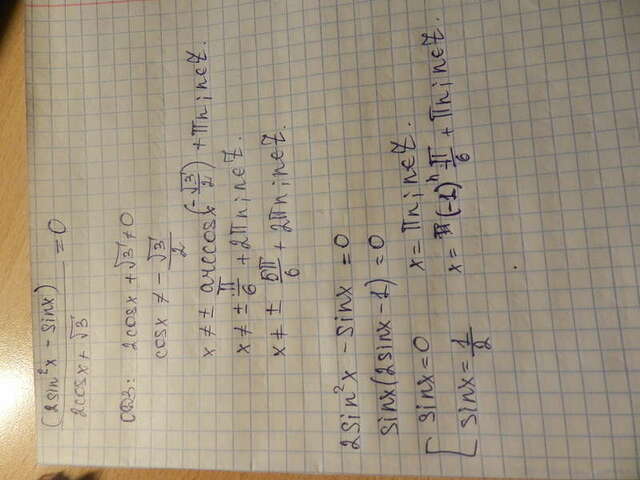 (2sin²x - sinx) / (2cosx + √3) = 0
ОДЗ: 2cosx + √3 ≠ 0
cosx ≠ - √3/2
x ≠ ± arccosx(-√3/2) + πn; n∈Z.
x ≠ ± π/6 + 2πn; n∈Z.
x ≠ ± 5π/6 + 2πn; n∈Z.
2sin²x - sinx = 0
sinx(2sinx - 1) = 0
[ sinx = 0 x = πn; n∈Z.
sinx = 1/2 x = (-1)ⁿ π/6 + πn; n∈Z.